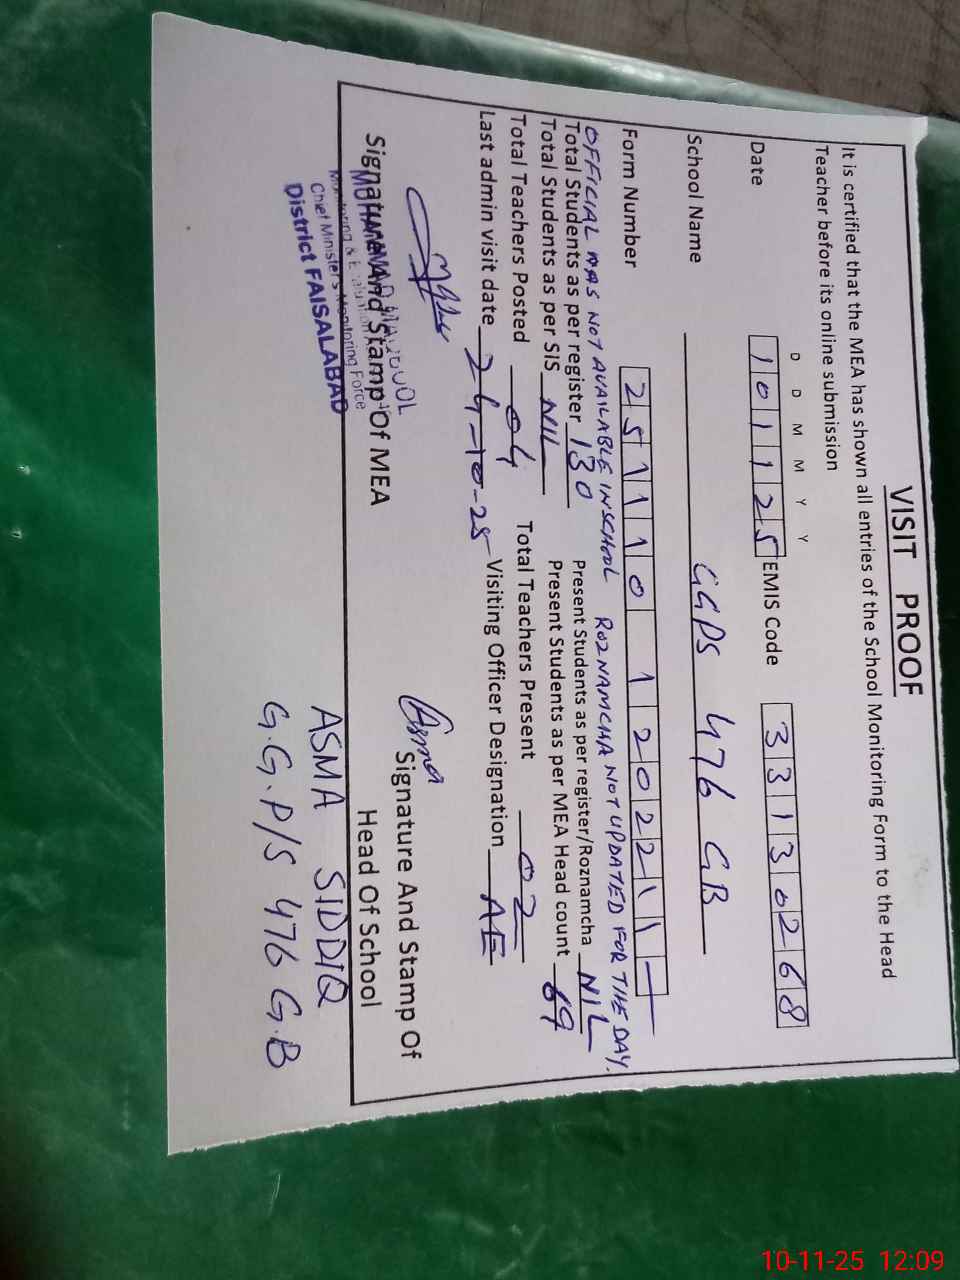 VISIT PROOF
It is certified that the MEA has shown all entries of the School Monitoring Form to the Head
Teacher before its online submission
D D M M Y Y
Date 1 0 1 1 2 5 EMIS Code 3 3 1 3 0 2 6 8
School Name GGPS 476 GB
Form Number 2 5 1 1 1 0 1 2 0 2 2 1 1 -
OFFICIAL WAS NOT AVAILABLE IN SCHOOL ROZNAMCHA NOT UPDATED FOR THE DAY.
Total Students as per register 130 Present Students as per register/Roznamcha NIL
Total Students as per SIS NIL Present Students as per MEA Head count 69
Total Teachers Posted 04 Total Teachers Present 02
Last admin visit date 24-10-25 Visiting Officer Designation AE
Asma
Signature And Stamp Of MEA
Signature And Stamp Of
Head Of School
MUHAMMAD MAQBOOL
Monitoring & Evaluation
Chief Minister's Monitoring Force
District FAISALABAD
ASMA SIDDIQ
G.G.P/S 476 G.B
10-11-25 12:09